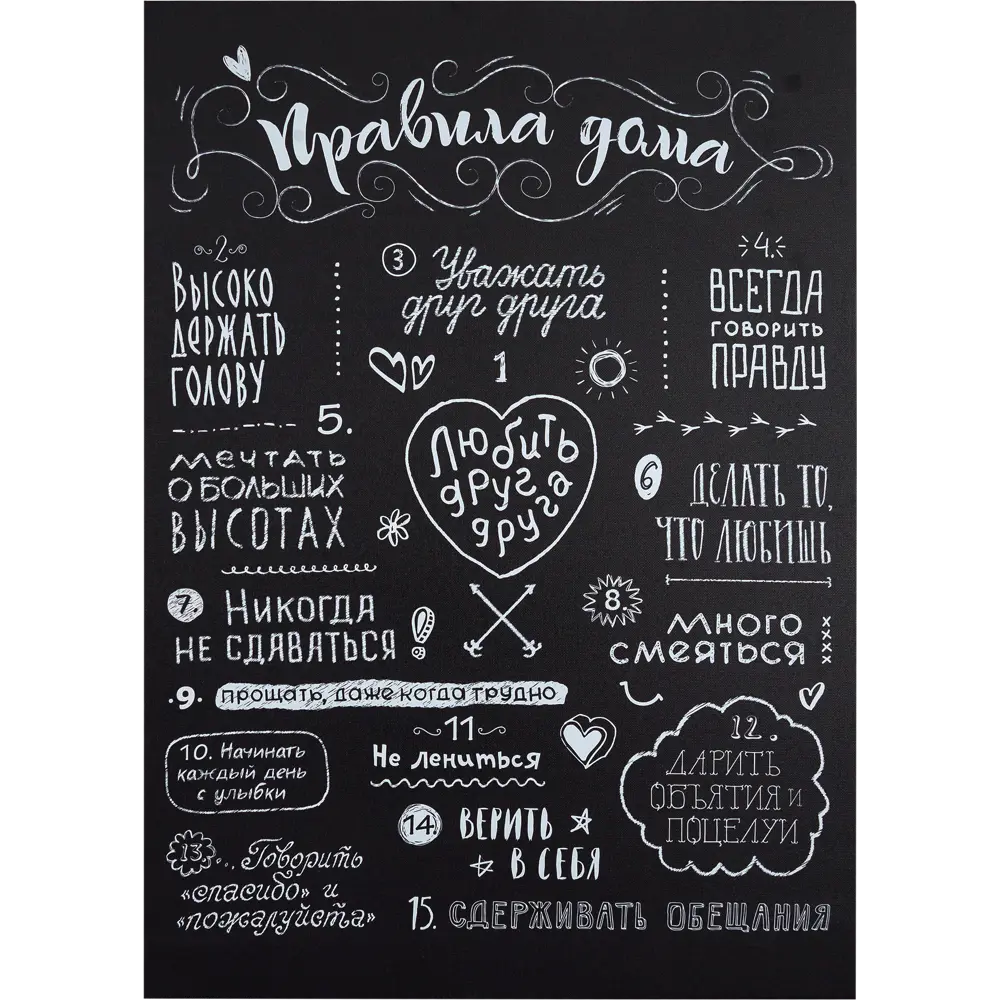 Правила дома
2
Высоко
держать
голову
3 Уважать
друг друга
4.
ВСЕГДА
ГОВОРИТЬ
ПРАВДУ
1
Любить
друг
друга
5.
мечтать
о больших
высотах
6 ДЕЛАТЬ ТО,
ЧТО ЛЮБИШЬ
7 Никогда
не сдаваться
8.
много
смеяться
xxxx
.9. прощать, даже когда трудно
10. Начинать
каждый день
с улыбки
11
Не лениться
12.
ДАРИТЬ
ОБЪЯТИЯ и
ПОЦЕЛУИ
13... Говорить
«спасибо» и
«пожалуйста»
14 ВЕРИТЬ
В СЕБЯ
15. СДЕРЖИВАТЬ ОБЕЩАНИЯ